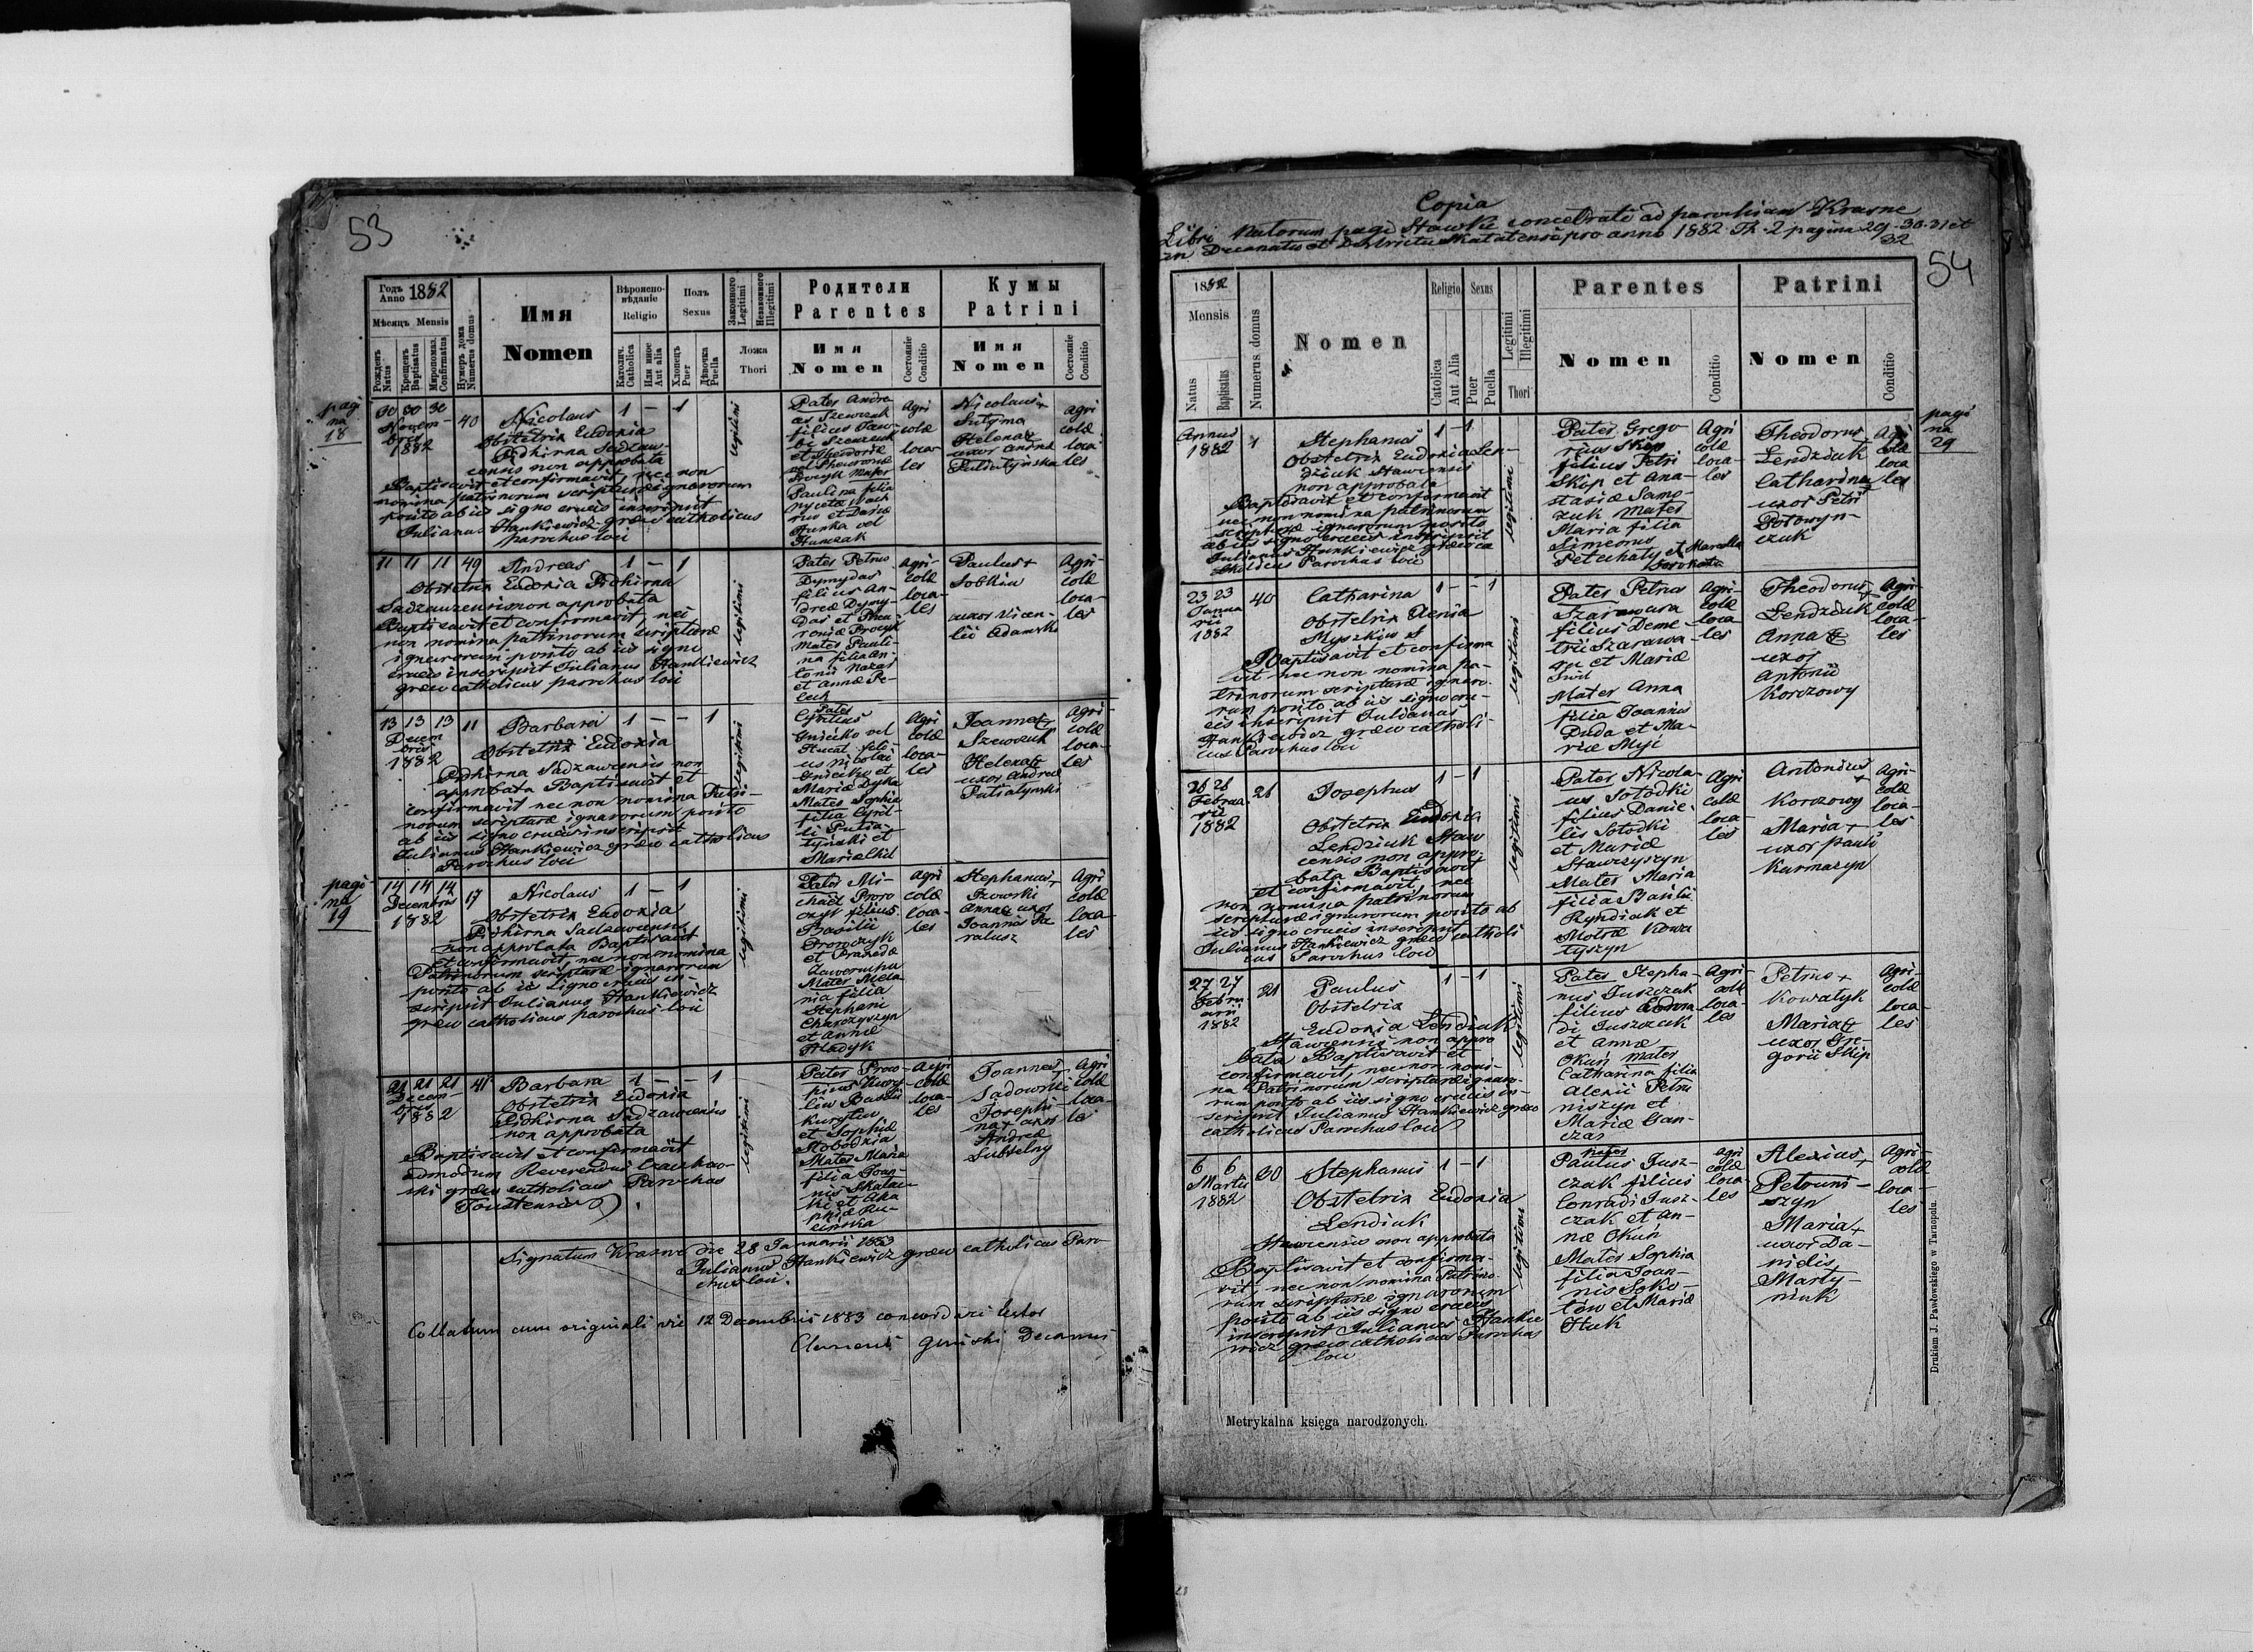 53
Годъ Anno 1882
Мѣсяцъ Mensis
Рожденъ Natus
Крещенъ Baptisatus
Миропомаз. Confirmatus
Нумеръ дома Numerus domus
Имя
Nomen
Вѣроиспо-
вѣданіе
Religio
Католич. Catholica
Или иное Aut alia
Полъ
Sexus
Хлопецъ Puer
Дѣвочка Puella
Законного Legitimi
Незаконного Illegitimi
Ложа
Thori
Родители
Parentes
Имя
Nomen
Состояніе Conditio
Кумы
Patrini
Имя
Nomen
Состояніе Conditio
pagi
na
18
30 30 30
Novem-
bris
1882
40
Nicolaus
Obstetrix Eudoxia
Pidhirna Sadzaw-
censis non approbata
Baptisavit et confirmavit, nec non
nomina patrinorum scripturae ignarorum
posito ab iis signo crucis inscripsit
Julianus Hankiewicz graeco catholicus
parochus loci
1 — 1
legitimi
Pater Andre
as Szewczuk
filius Jaco-
bi Szewczuk
et Theodoriae
Procyk Mater
Paulina filia
et Dariae
Hunczak
Agri
colae
loca-
les
Nicolaus +
Sutyma
Helena +
uxor Andreae
Putiatyńska
agri
colae
loca
les
11 11 11
49
Andreas
1 — 1
Obstetrix Eudoxia Pidhirna
Sadzawcensis non approbata
Baptisavit et confirmavit, nec
non nomina patrinorum scripturae
ignarorum posito ab iis signo
crucis inscripsit Julianus Hankiewicz
graeco catholicus parochus loci
legitimi
Pater Petrus
Dymydas
filius An-
dreae Dymy-
das et Theo-
roniae Procyk
Mater Pauli-
na filia An-
tonii Nakaz
et Annae Pe-
lech
Agri-
colae
loca-
les
Paulus +
Sobkiw
uxor Vicen-
tii Adamski
Agri-
colae
loca-
les
13 13 13
Decem
bris
1882
11
Barbara
1 — — 1
Obstetrix Eudoxia
Pidhirna Sadzawcensis non
approbata Baptisavit et
confirmavit nec non nomina Patri-
norum scripturae ignarorum posito
ab iis signo crucis inscripsit
Julianus Hankiewicz graeco catholicus
Parochus loci
legitimi
Pater
Cyrillus
Gniecko vel
Hucal fili-
us Nicolai
Gniecko et
Mariae Dyka
Mater Sophia
filia Cyril-
li Putia-
tyński et
Mariae Chil
Agri
colae
loca-
les
Joannes +
Szewczuk
Helena +
uxor Andreae
Putiatyński
Agri-
colae
loca-
les
pagi-
na
19
14 14 14
Decembris
1882
17
Nicolaus
1 — 1
Obstetrix Eudoxia
Pidhirna Sadzawcensis
non approbata Baptisavit
et confirmavit, nec non nomina
Patrinorum scripturae ignarorum
posito ab iis signo crucis in-
scripsit Julianus Hankiewicz
graeco catholicus parochus loci
legitimi
Pater Mi-
chael Proro
czyk filius
Basilii
Proroczyk
et Praxedae
Zaworucha
Mater Mela
nia filia
Stephani
Charczyszyn
et Annae
Hladyk
agri
colae
loca-
les
Stephanus +
Izowski
Anna uxor
Joannis Pa
ratusz
Agri
colae
loca
les
21 21 21
Decem-
bris
1882
41
Barbara
1 — — 1
Obstetrix Eudoxia
Pidhirna Sadzawcensis
non approbata
Baptisavit et confirmavit
admodum Reverendus Czaczkow-
ski graeco catholicus Parochus
Toustensis
legitimi
Pater Proco-
pius Kury-
liw Basilii
Kuryliw
et Sophiae
Stobodzia
Mater Maria
filia Joan-
nis Skalac-
ki et Aga
phiae Ru-
cińska
Agri
colae
loca-
les
Joannes +
Sadowski
Josephi-
na + uxor
Andreae
Subtelny
Agri
colae
loca-
les
Signatum Krasne die 28 Januarii 1883
Julianus Hankiewicz graeco catholicus Paro-
chus loci.
Collatum cum originali die 12 Decembris 1883 concordari testor
Clemens Decanus
Copia
Libri Natorum pagi Stawki concetrati ad parochiam Krasne
in Decanatu et Districtu Skalatensi pro anno 1882 Th. 2 pagina 29. 30. 31 et
32
54
1882
Mensis
Natus
Baptisatus
Numerus domus
Nomen
Religio
Catholica
Aut. Alia
Sexus
Puer
Puella
Legitimi
Illegitimi
Thori
Parentes
Nomen
Conditio
Patrini
Nomen
Conditio
pagi
na
29
Annus
1882
1
Stephanus
1 — 1
Obstetrix Eudoxia Len-
dziuk Stawcensis
non approbata
Baptisavit et confirmavit
nec non nomina patrinorum
scripturae ignarorum posito
ab iis signo crucis inscripsit
Julianus Hankiewicz graeco ca
tholicus Parochus loci
legitimi
Pater Grego
rius Skip
filius Petri
Skop et Ana-
stasiae Samo-
zuk Mater
Maria filia
Simeonis
Petechaty et Marellae
Sorokata
Agri
colae
loca-
les
Theodorus
Lendziuk
Catharina +
uxor Petri
Botowyn-
czuk
Agri
colae
loca
les
23 23
Janua
rii
1882
40
Catharina
1 — — 1
Obstetrix Xenia
Myszkiw
Baptisavit et confirma
vit nec non nomina pa-
trinorum scripturae ignaro-
rum posito ab iis signo cru-
cis inscripsit Julianus
Hankiewicz graeco catholi-
cus Parochus loci
legitimi
Pater Petrus
Szarawara
filius Deme-
trii Szarawa-
ra et Mariae
Mater Anna
filia Joannis
Duda et Ma-
riae Myj
Agri-
colae
loca-
les
Theodorus +
Lendziuk
Anna +
uxor
Antonii
Korczowy
Agri-
colae
loca-
les
26 26
Februa
rii
1882
26
Josephus
1 — 1
Obstetrix Eudoxia
Lendziuk Staw
censis non appro-
bata Baptisavit
et confirmavit, nec
non nomina patrinorum
scripturae ignarorum posito ab
iis signo crucis inscripsit
Julianus Hankiewicz graeco catholi
cus Parochus loci
legitimi
Pater Nicola-
us Sołodki
filius Danie-
lis Sołodki
et Mariae
Stawczyszyn
Mater Maria
filia Basilii
Ryndiak et
Motrae Kowa
tyszyn
Agri-
colae
loca-
les
Antonius +
Korczowy
Maria +
uxor Pauli
Karmazyn
Agri-
colae
loca-
les
27 27
Febru
arii
1882
21
Paulus
1 — 1
Obstetrix
Eudoxia Lendiuk
Stawcensis non appro
bata Baptisavit et
confirmavit nec non nomi-
na Patrinorum scripturae ignaro-
rum posito ab iis signo crucis in-
scripsit Julianus Hankiewicz graeco
catholicus Parochus loci
legitimi
Pater Stepha-
nus Juszczak
filius Conra-
di Juszczak
et Annae
Okuń Mater
Catharina filia
Alexii Petru
niszyn et
Mariae Gan-
czar
Agri-
colae
loca-
les
Petrus +
Kowalyk
Maria +
uxor Gre-
gorii Skip
Agri-
colae
loca-
les
6 6
Martii
1882
30
Stephanus
1 — 1
Obstetrix Eudoxia
Lendiuk
Stawcensis non approbata
Baptisavit et confirma-
vit, nec non nomina Patrino-
rum scripturae ignarorum
posito ab iis signo crucis
inscripsit Julianus Hankie
wicz graeco catholicus Parochus
loci
legitimi
Pater
Paulus Jusz-
czak filius
Conradi Jusz-
czak et An-
nae Okuń
Mater Sophia
filia Joan-
nis Soko-
tow et Mariae
Huk
agri
colae
loca-
les
Alexius +
Petruni-
szyn
Maria +
uxor Da-
nielis
Marty-
niuk
Agri-
colae
loca-
les
Metrykalna księga narodzonych.
Drukiem J. Pawłowskiego w Tarnopolu.